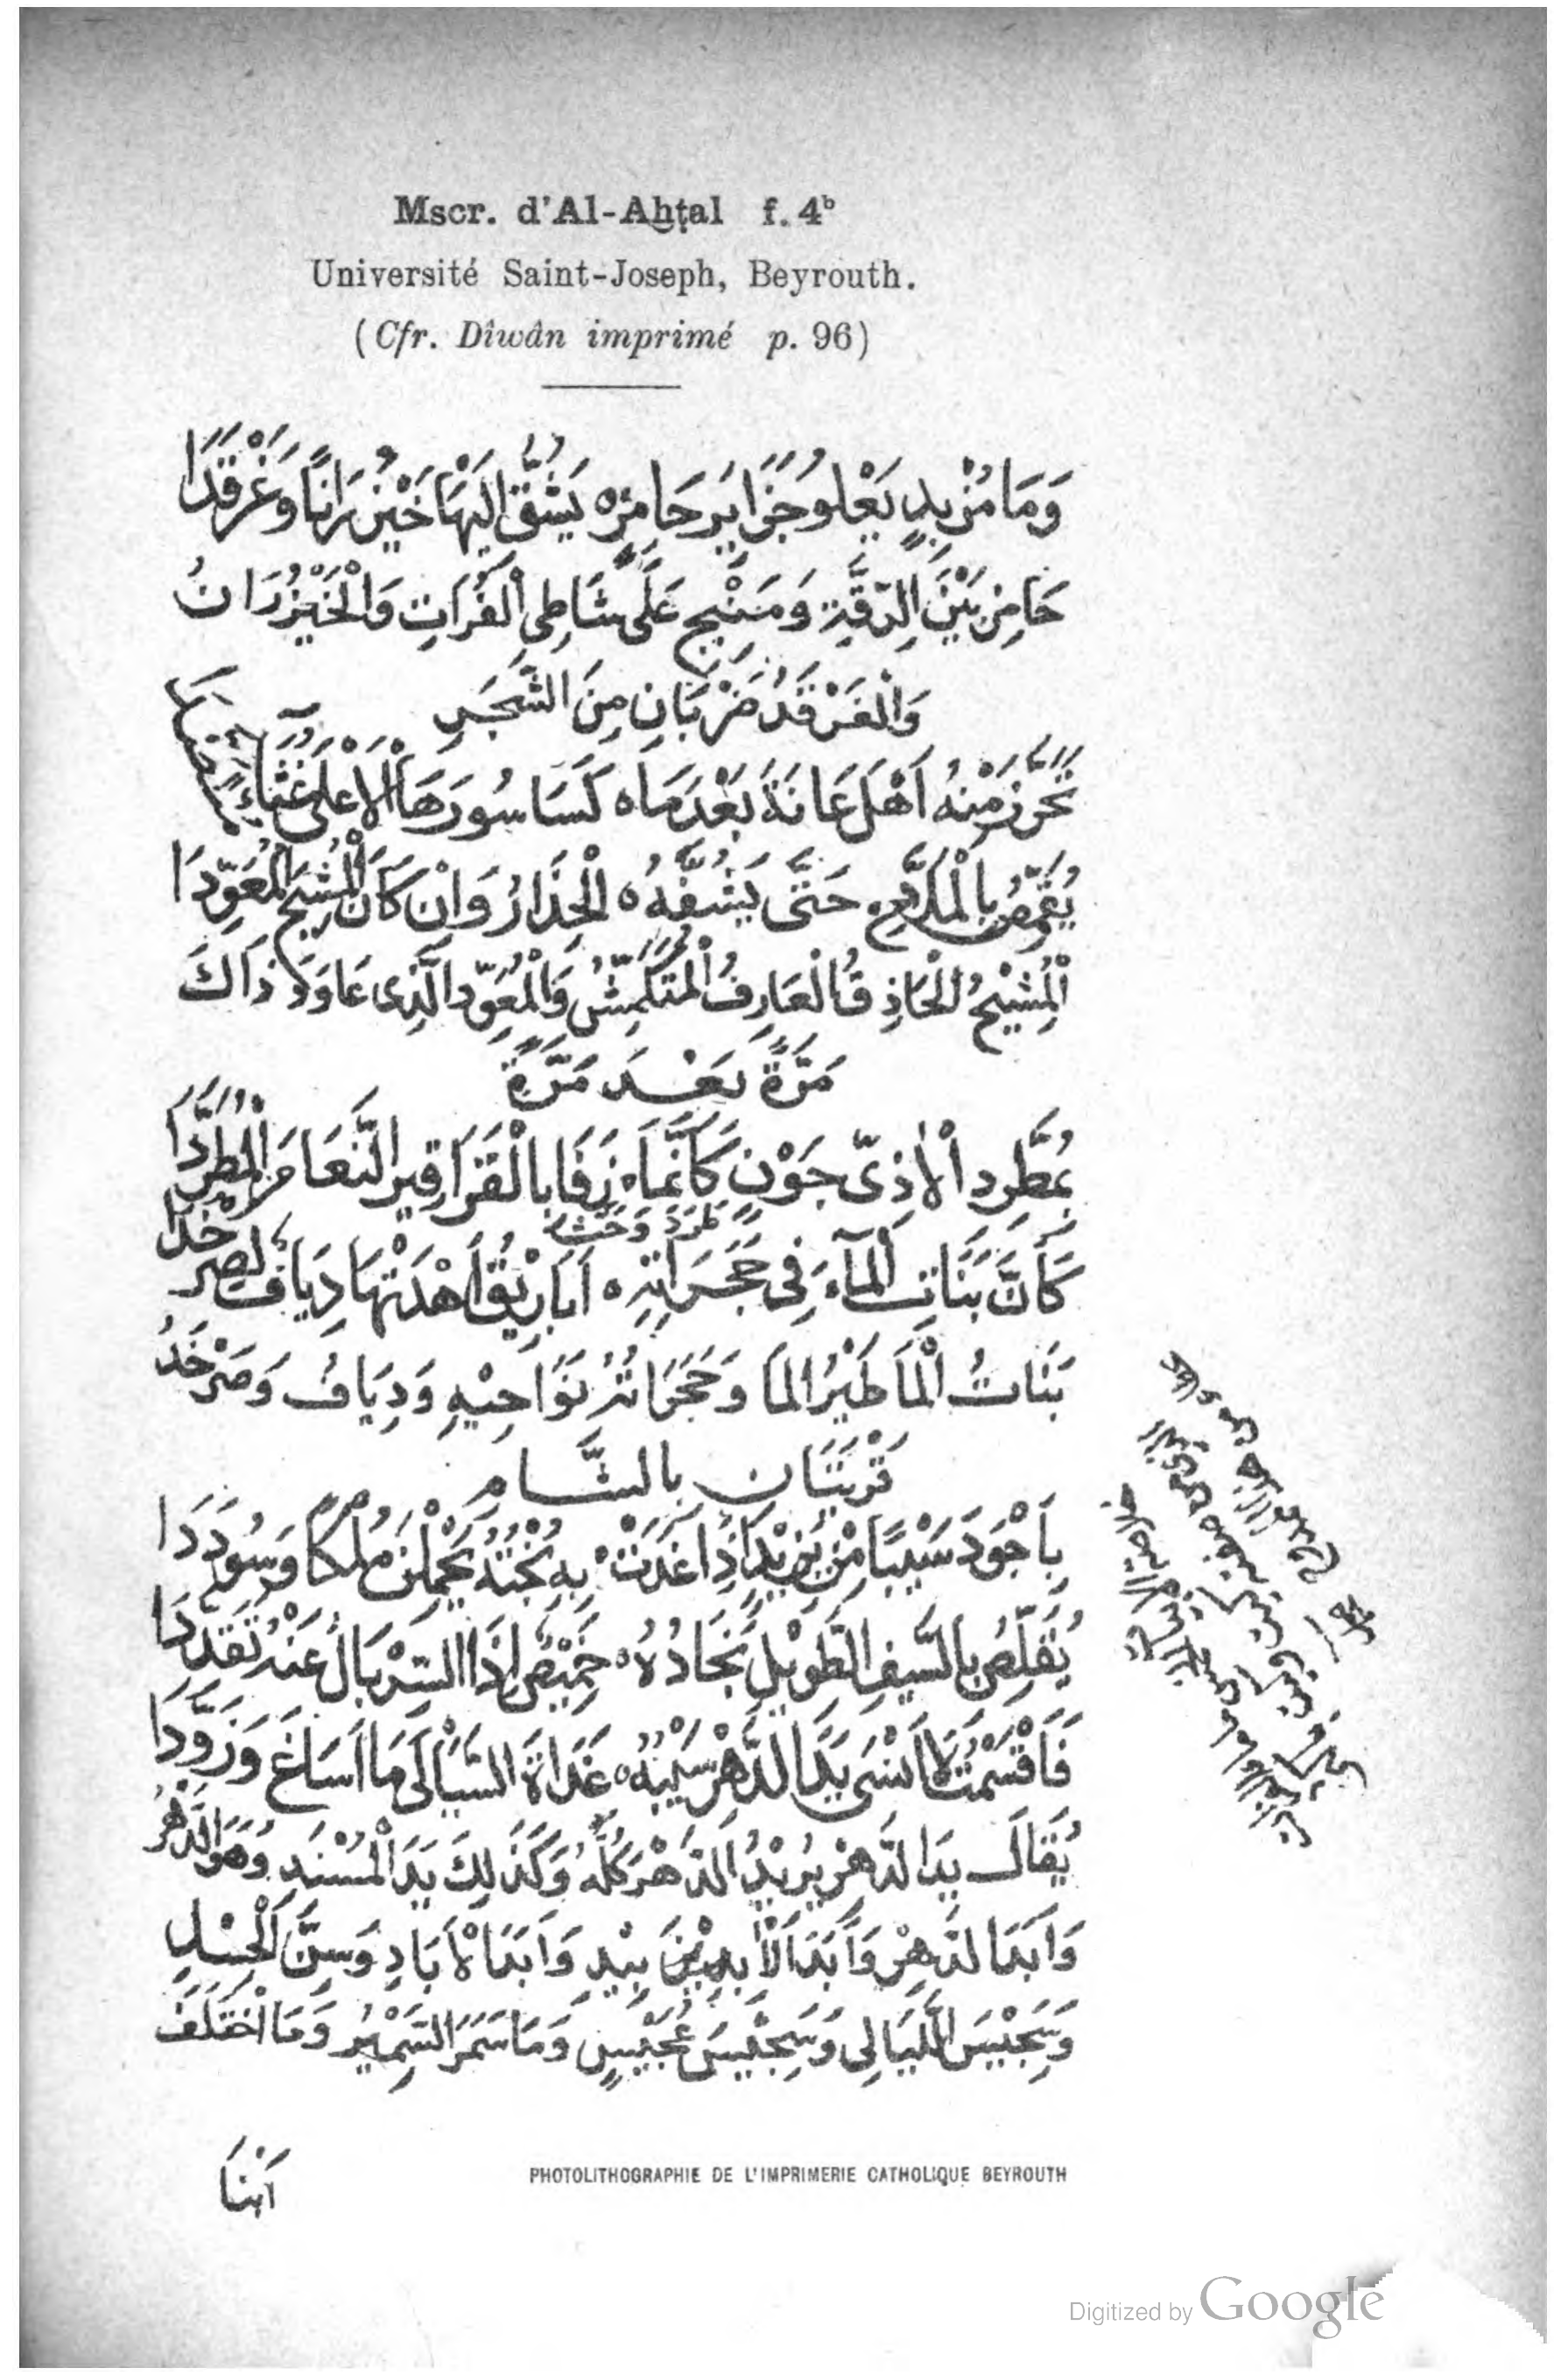 Mscr. d'Al-Aḫṭal f. 4ᵇ
Université Saint-Joseph, Beyrouth.
(Cfr. Dîwân imprimé p. 96)
وَمَا مُزْبِدٌ يَعْلُو جَزَايَر حَامِزٍ ه يَشُقُّ اِلَيْهَا خَيْزُرَانًا وَغَرْقَدَا
حَامِز بَيْنَ الرَّقَّةِ وَمَنْبِجٍ عَلَى شَاطِى الْفُرَاتِ وَالْخَيْزُرَانُ
وَالْغَرْقَدُ ضَرْبَانِ مِنَ الشَّجَرِ
تَحَرَّزَ مِنْهُ اَهْلُ عَانَةَ بَعْدَمَا ه كَسَا سُورَهَا الْاَعْلَى غُثَاءً
يُقَمِّصُ بِالْمَلَّاحِ حَتَّى يَشُفَّهُ ه الْحِذَارُ وَاِنْ كَانَ الْمُشِيحَ الْمُعَوَّدَا
الْمُشِيْحُ الْحَاذِقُ الْعَارِفُ الْمُتَكَمِّشُ وَالْمُعَوَّد الَّذِى عَاوَدَ ذَاكَ
مَرَّةً بَعْدَ مَرَّةٍ
بِمُطَّرِد الْاٰذِىِّ جَوْنٍ كَاَنَّمَا ه زَفَا بِالْقَرَاقِيرِ النَّعَامَ الْمُطَرَّدَا
طَرَدَ وَحَثَّ
كَاَنَّ بَنَاتِ الْمَآءِ فِى حَجَرَاتِهِ ه اَبَارِيْقُ اَهْدَتْهَا دِيَافُ لِصَرْخَدَا
بَنَاتُ الْمَا طَيْرُ الْمَا وَحَجَرَاتُهُ نَوَاحِيْهِ وَدِيَافُ وَصَرْخَدُ
قَرْيَتَانِ بِالشَّامِ
بِاَجْوَدَ سَيْبًا مِنْ يَزِيْدَ اِذَا غَدَتْ ه بِهِ بُخْتُهُ يَحْمِلْنَ مُلْكًا وَسُودَدَا
يُقَلِّصُ بِالسَّيْفِ الطَّوِيْلِ نَجَادُهُ ه خَمِيْصٌ اِذَا السِّرْبَالُ عَنْهُ تَقَدَّدَا
فَاَقْسَمْتُ لَا اَنْسَى يَدَا الدَّهْرِ سَيْبَهُ ه غَدَاةَ السَّيَالَى مَا اَسَاغَ وَزَوَّدَا
يُقَالُ يَدَا لدَّهْرِ يُرِيْدُ الدَّهْرَ كُلَّهُ وَكَذَلِكَ يَدَ الْمُسْنَدِ وَهُوَ الدَّهْرُ
وَاَبَدَا لدَّهْرِ وَاَبَدَ الْاٰبِدِيْنَ بِيْدِ وَاَبَدَ الْاَبَادِ وَسِنَّ الْحِسْلِ
وَسَجِيْسَ اللَّيَالِى وَسَجِيْسَ عُجَيْسٍ وَمَا سَمَرَ السَّمِيْرُ وَمَا اخْتَلَفَ
اَبْنَا
PHOTOLITHOGRAPHIE DE L'IMPRIMERIE CATHOLIQUE BEYROUTH
Digitized by Google